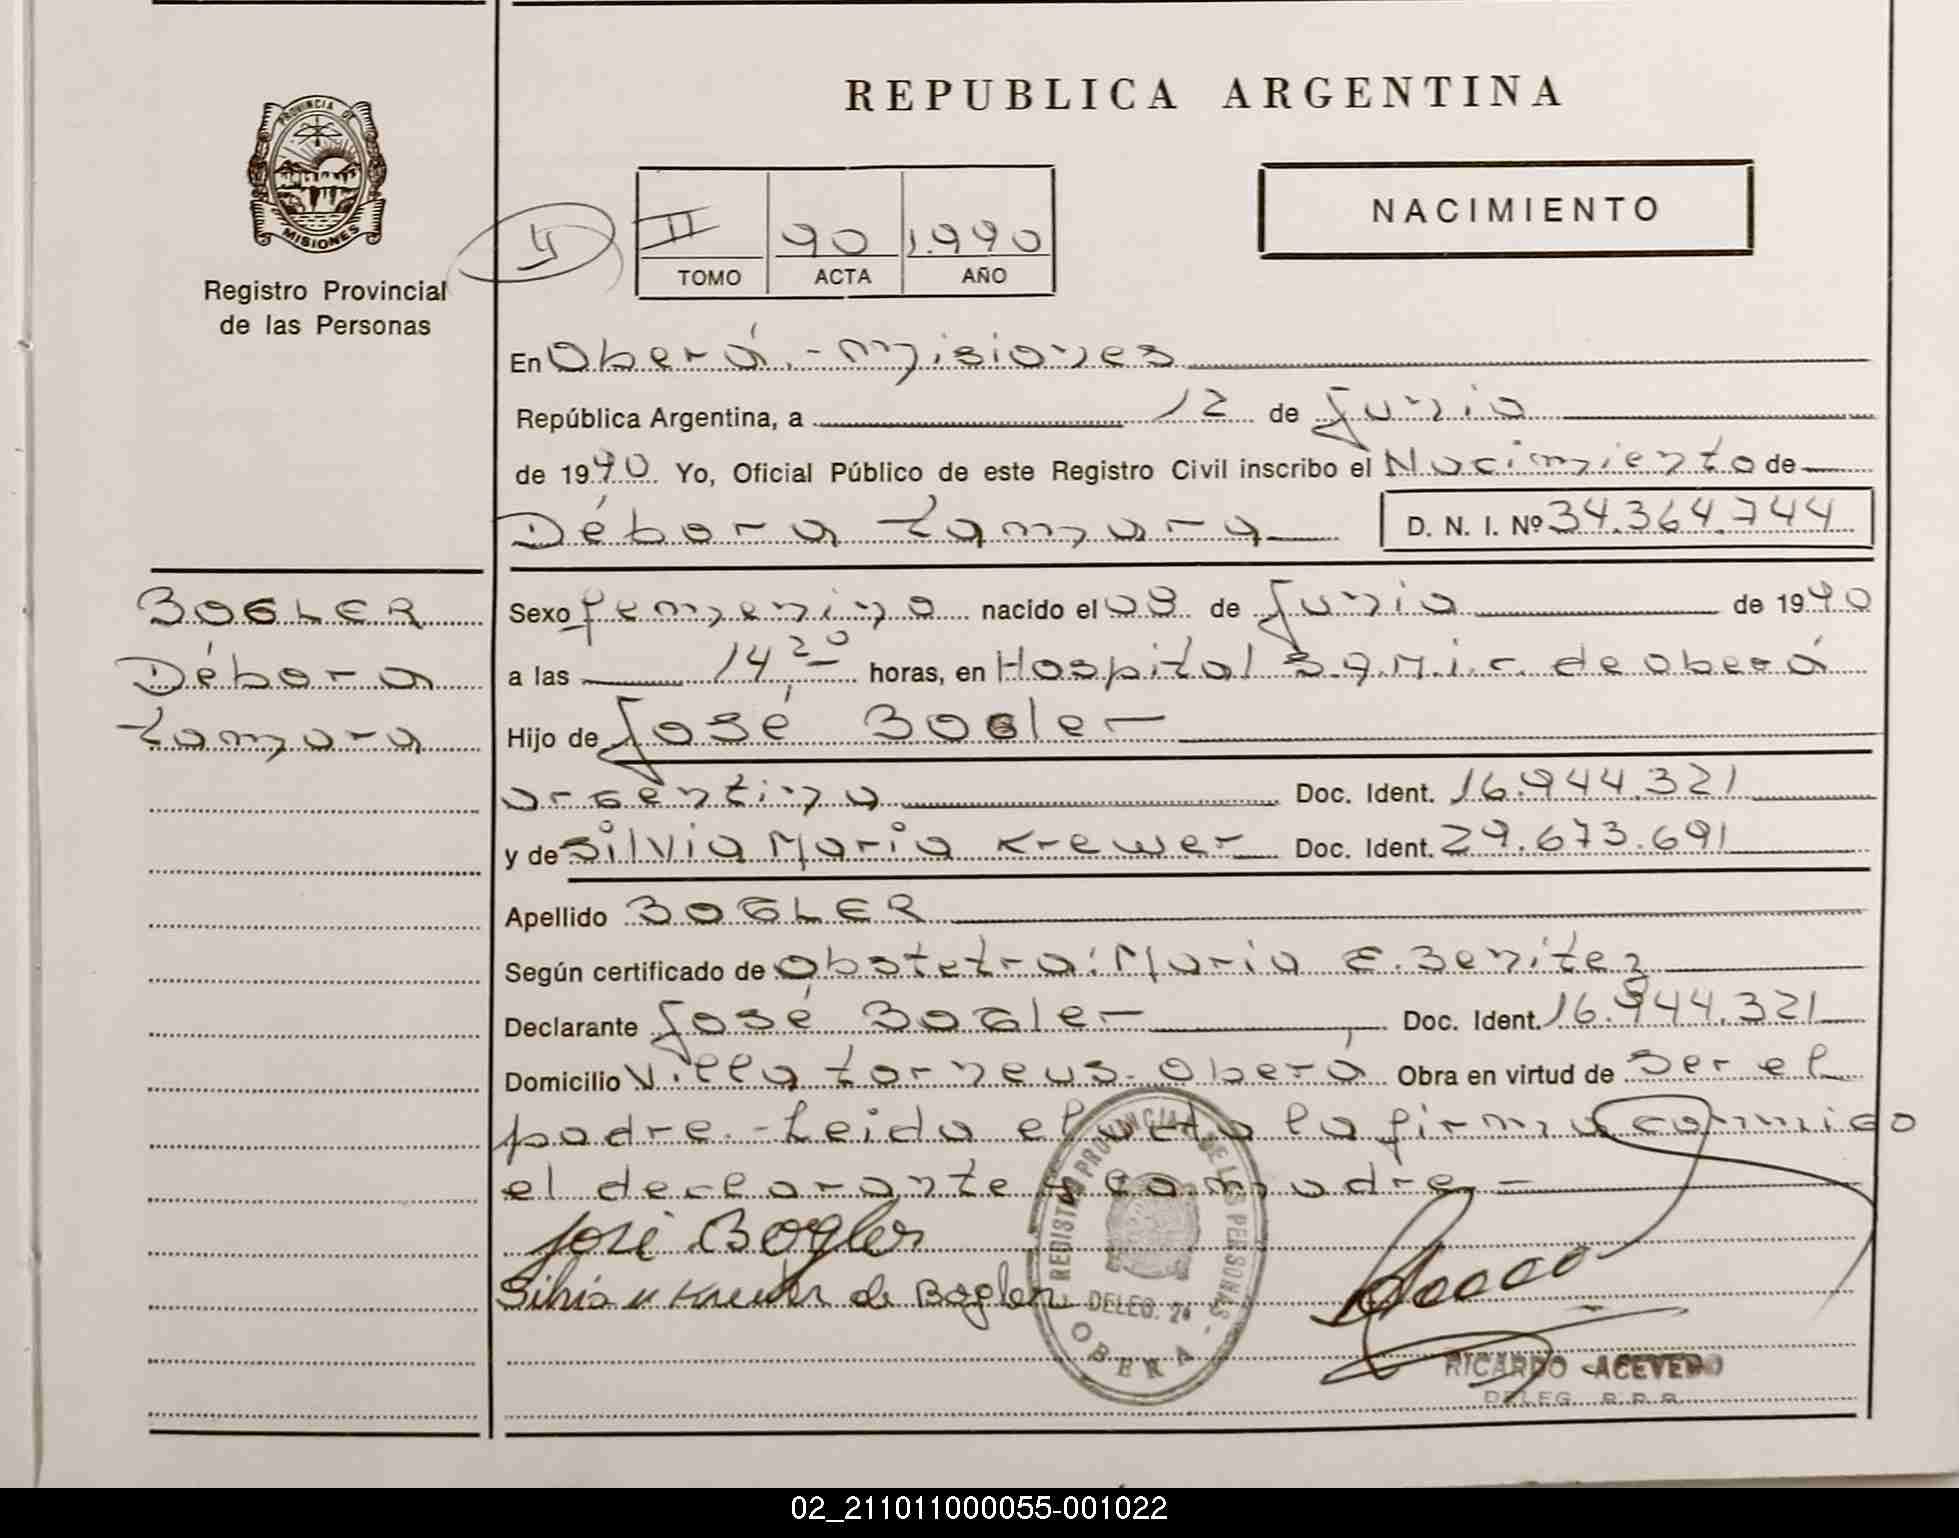 REPUBLICA ARGENTINA
PROVINCIA DE
MISIONES
Registro Provincial
de las Personas
II 90 1.990
TOMO ACTA AÑO
NACIMIENTO
En Oberá.- Misiones
República Argentina, a 12 de Junio
de 1990 Yo, Oficial Público de este Registro Civil inscribo el Nacimiento de
Débora Tamara D. N. I. Nº 34.364.744
BOGLER
Débora
Tamara
Sexo femenino nacido el 08 de Junio de 1990
a las 14,20 horas, en Hospital S.A.M.i.c. de oberá
Hijo de José Bogler
argentino Doc. Ident. 16.944.321
y de Silvia Maria Krewer Doc. Ident. 29.673.691
Apellido BOGLER
Según certificado de Obstetra: Maria E. Benitez
Declarante José Bogler Doc. Ident. 16.944.321
Domicilio Villa torneus. Oberá Obra en virtud de Ser el
padre.- Leida el acta la firma conmigo
el declarante y la madre.-
José Bogler
Silvia M Krewer de Bogler
REGISTRO PROVINCIAL DE LAS PERSONAS
DELEG. 2ª
OBERA
RICARDO ACEVEDO
DELEG. R.P.P.
02_211011000055-001022